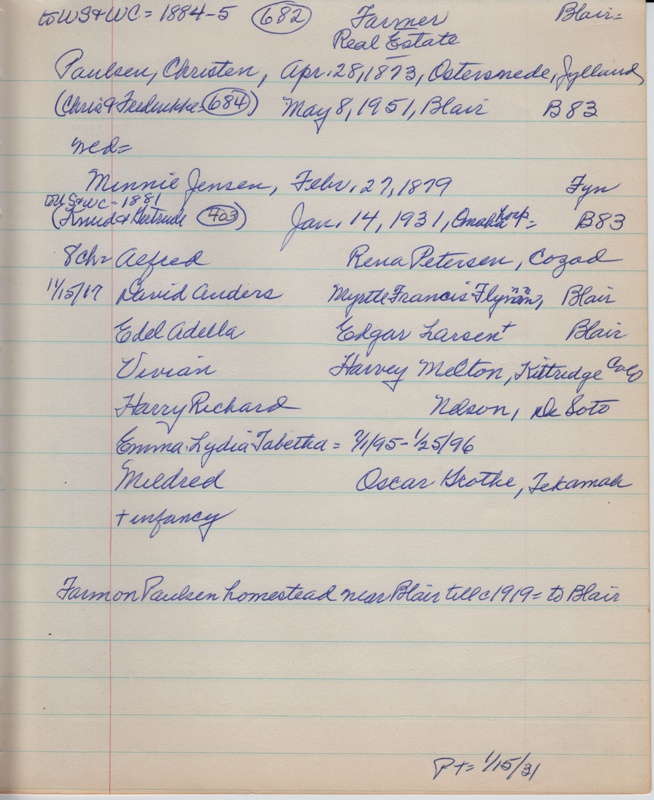 to US & WC = 1884-5 (682) Farmer Blair =
Real Estate
Paulsen, Christen, Apr. 28, 1873, Ostersnede, Jylland
(Chris & Fredrikke (684)) May 8, 1951, Blair B83
Med =
Minnie Jensen, Febr. 27, 1879 Fyn
to US & WC = 1881
(Knud & Gertrude (403)) Jan. 14, 1931, Omaha Hosp = B83
8 chr Alfred Rena Petersen, Cozad
11/15/17 David Anders Myrtle Francis Flynn, Blair
Edel Adella Edgar Larsen + Blair
Vivian Harvey Melton, Kittridge Colo
Harry Richard Nelson, De Soto
Emma Lydia Tabetha = 7/1/95 - 1/25/96
Mildred Oscar Grothe, Tekamah
+ infancy
Farm on Paulsen homestead near Blair till c 1919 = to Blair
PT = 1/15/31